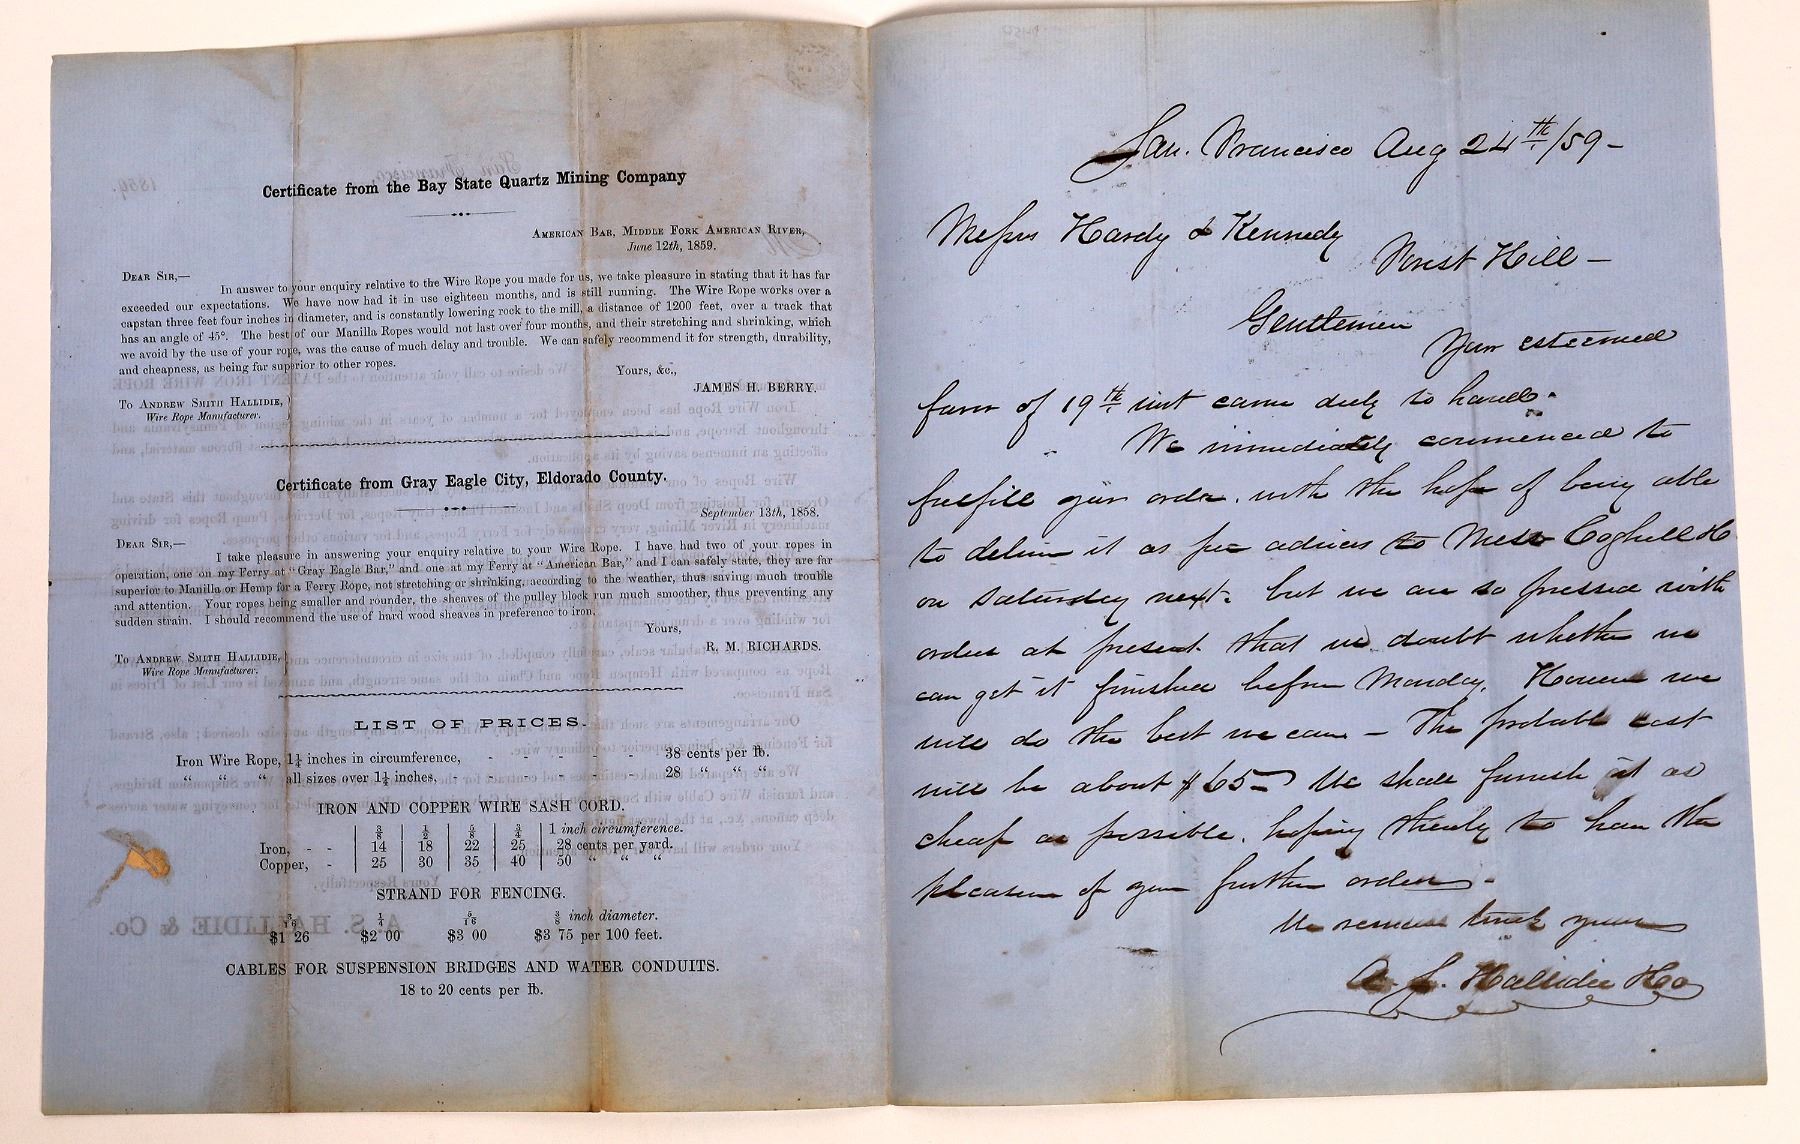 Certificate from the Bay State Quartz Mining Company
American Bar, Middle Fork American River,
June 12th, 1859.
Dear Sir,—
In answer to your enquiry relative to the Wire Rope you made for us, we take pleasure in stating that it has far
exceeded our expectations. We have now had it in use eighteen months, and is still running. The Wire Rope works over a
capstan three feet four inches in diameter, and is constantly lowering rock to the mill, a distance of 1200 feet, over a track that
has an angle of 45°. The best of our Manilla Ropes would not last over four months, and their stretching and shrinking, which
we avoid by the use of your rope, was the cause of much delay and trouble. We can safely recommend it for strength, durability,
and cheapness, as being far superior to other ropes.
Yours, &c.,
JAMES H. BERRY.
To Andrew Smith Hallidie,
Wire Rope Manufacturer.
Certificate from Gray Eagle City, Eldorado County.
September 13th, 1858.
Dear Sir,—
I take pleasure in answering your enquiry relative to your Wire Rope. I have had two of your ropes in
operation, one on my Ferry at "Gray Eagle Bar," and one at my Ferry at "American Bar," and I can safely state, they are far
superior to Manilla or Hemp for a Ferry Rope, not stretching or shrinking, according to the weather, thus saving much trouble
and attention. Your ropes being smaller and rounder, the sheaves of the pulley block run much smoother, thus preventing any
sudden strain. I should recommend the use of hard wood sheaves in preference to iron.
Yours,
R. M. RICHARDS.
To Andrew Smith Hallidie,
Wire Rope Manufacturer.
LIST OF PRICES.
Iron Wire Rope, 1¼ inches in circumference, - - - - - 38 cents per lb.
" " " all sizes over 1¼ inches, - - - - - - 28 " " "
IRON AND COPPER WIRE SASH CORD.
⅜ ½ ⅝ ¾ 1 inch circumference.
Iron, - - 14 18 22 25 28 cents per yard.
Copper, - 25 30 35 40 50 " " "
STRAND FOR FENCING.
3/16 ¼ 5/16 ⅜ inch diameter.
$1 26 $2 00 $3 00 $3 75 per 100 feet.
CABLES FOR SUSPENSION BRIDGES AND WATER CONDUITS.
18 to 20 cents per lb.
San. Francisco Aug 24th/59-
Messrs Hardy & Kennedy
Forest Hill -
Gentlemen
Your esteemed
favor of 19th inst came duly to hand.
We immediately commenced to
fulfill your order. with the hope of being able
to deliver it as per advices to Mess Coghill & Co
on Saturday next. but we are so pressed with
orders at present that we doubt whether we
can get it finished before Monday. However we
will do the best we can - The probable cost
will be about $65- We shall furnish it as
cheap as possible. hoping thereby to have the
pleasure of your further orders -
We remain truly yours
A. S. Hallidie & Co